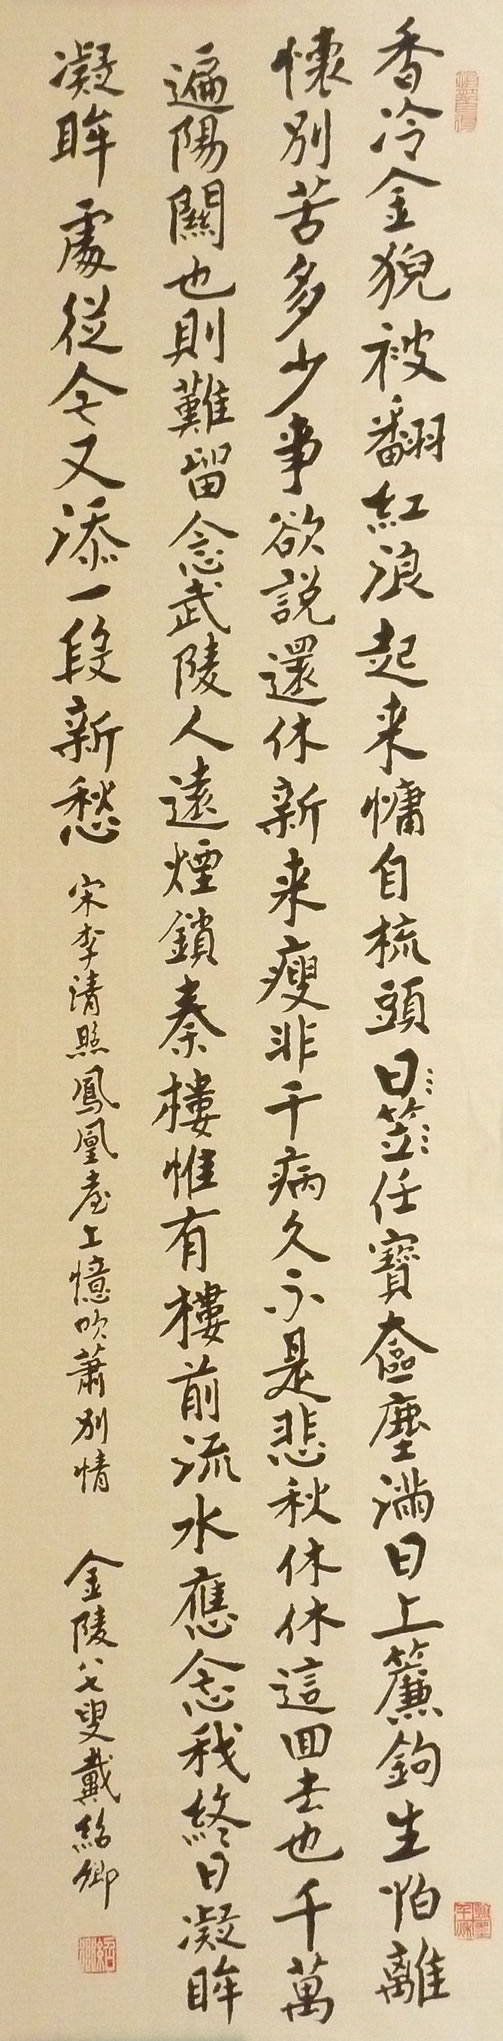 香冷金猊被翻紅浪起来慵自梳頭日笠任寶奩塵滿日上簾鉤生怕離
懷別苦多少事欲說還休新来瘦非干病久不是悲秋休休這回去也千萬
遍陽關也則難留念武陵人遠煙鎖秦樓惟有樓前流水應念我終日凝眸
凝眸處從今又添一段新愁 宋李清照鳳凰臺上憶吹蕭別情 金陵八七叟戴紹卿